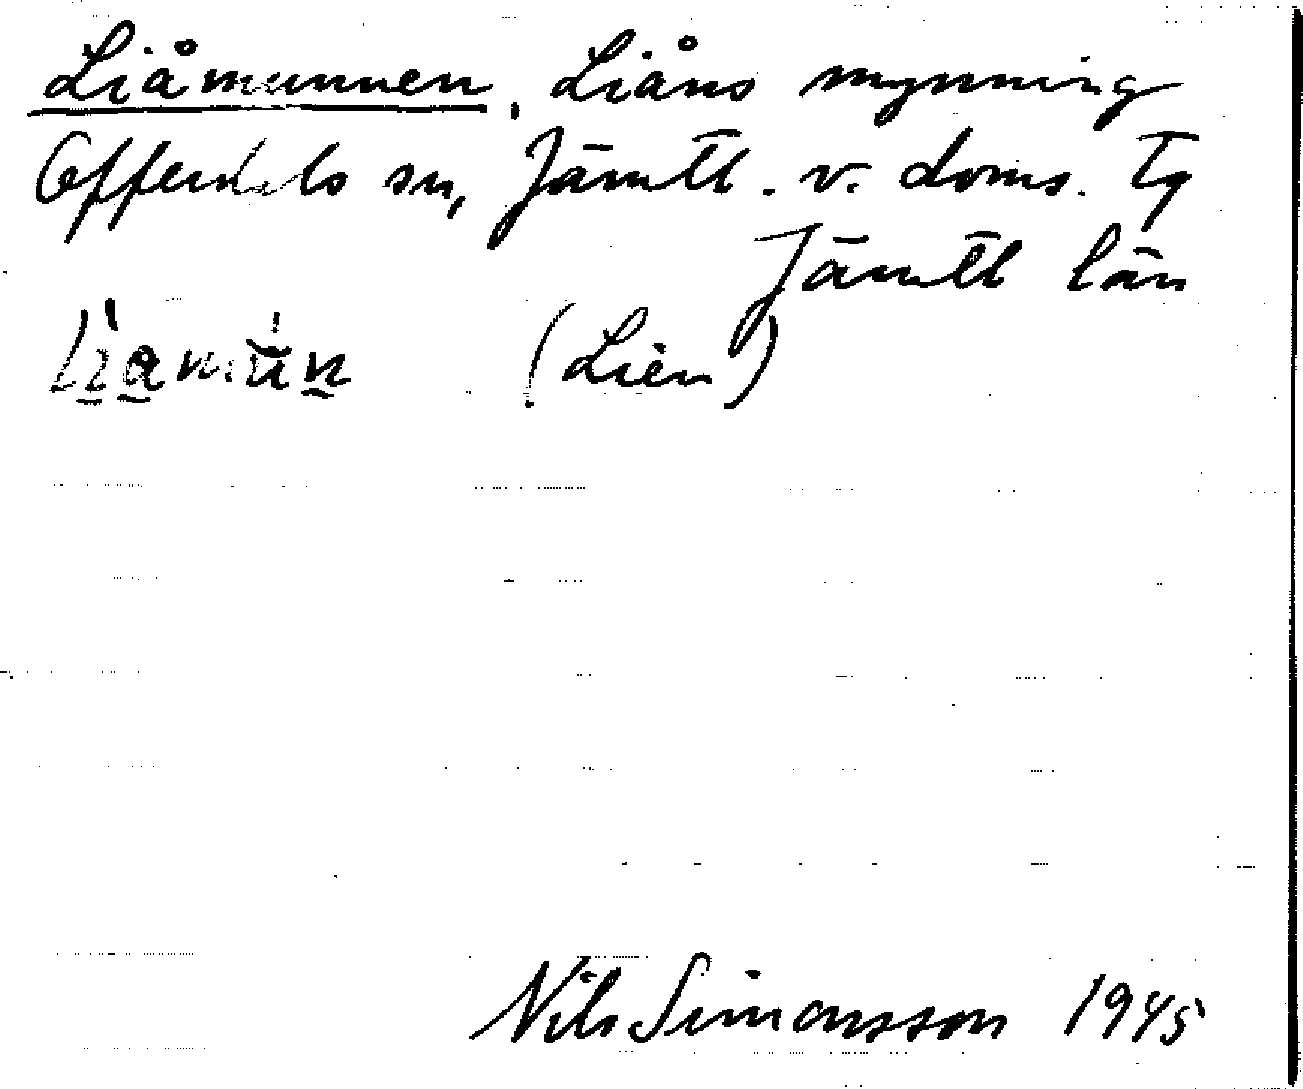 Liåmunnen, Liåns mynning
Offerdals sn, Jämtl. v. doms. Tg
Jämtl län
(Lien)
Nils Simonsson 1945